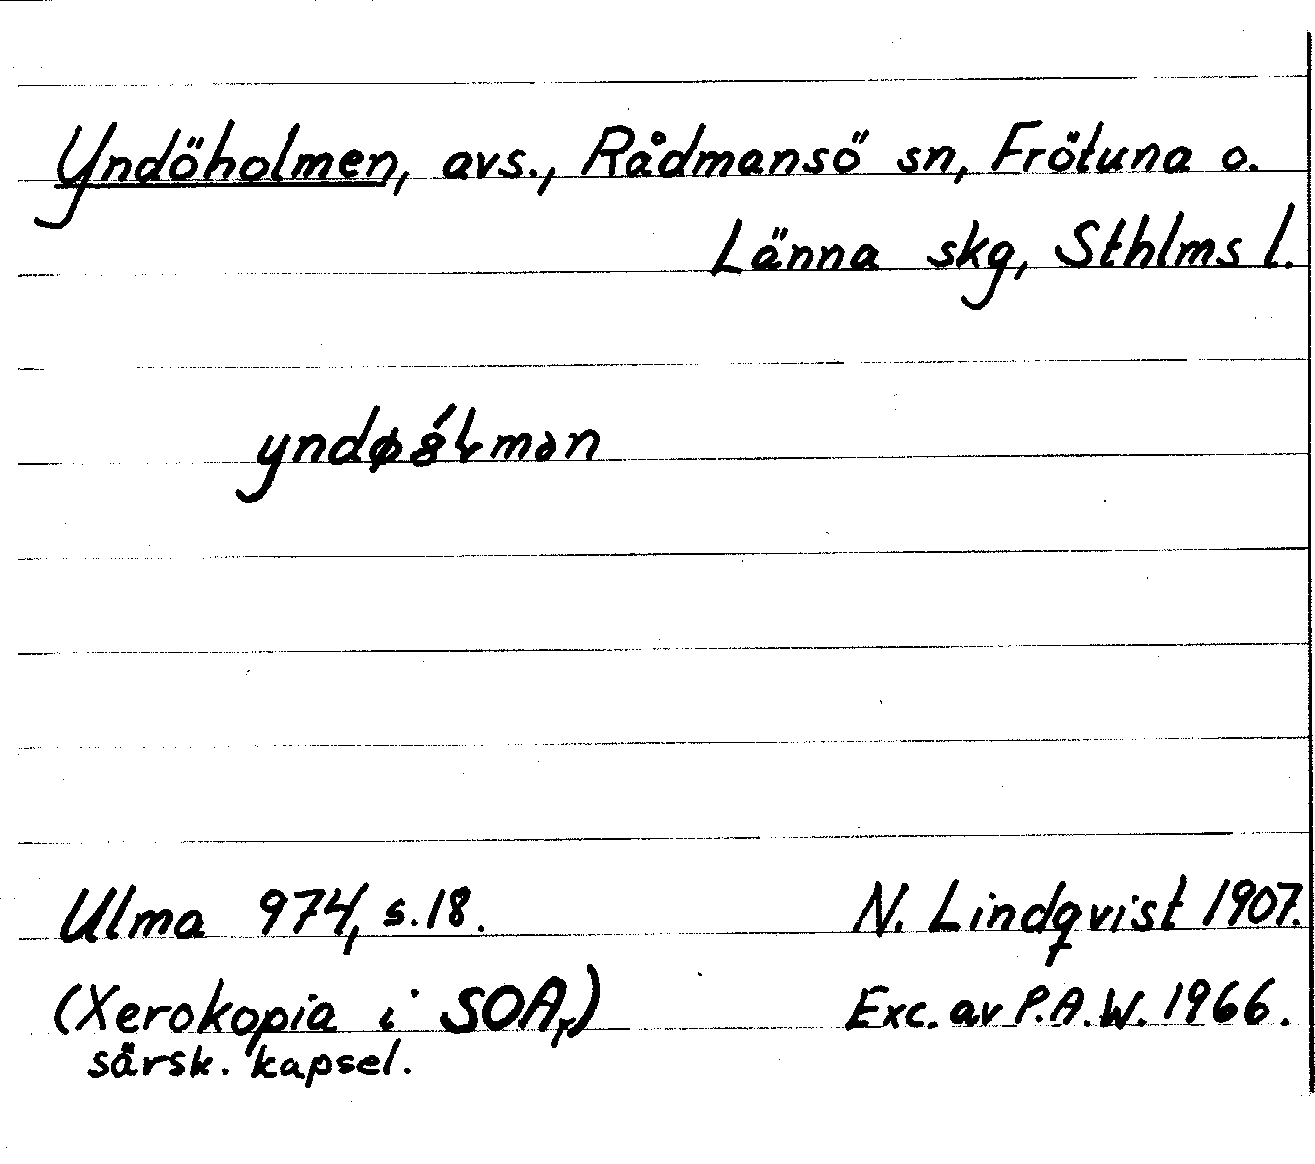 Yndöholmen, avs., Rådmansö sn, Frötuna o.
Länna skg, Sthlms l.
Ulma 974, s. 18.
N. Lindqvist 1907.
(Xerokopia i SOA,)
Exc. av P.A.W. 1966.
särsk. kapsel.